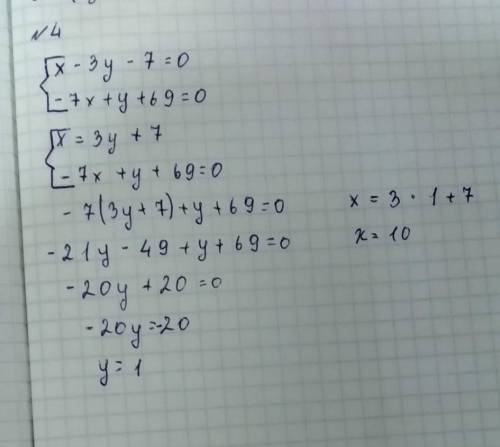 №4
x - 3y - 7 = 0
-7x + y + 69 = 0
x = 3y + 7
-7x + y + 69 = 0
-7(3y + 7) + y + 69 = 0
-21y - 49 + y + 69 = 0
-20y + 20 = 0
-20y = -20
y = 1
x = 3 · 1 + 7
x = 10